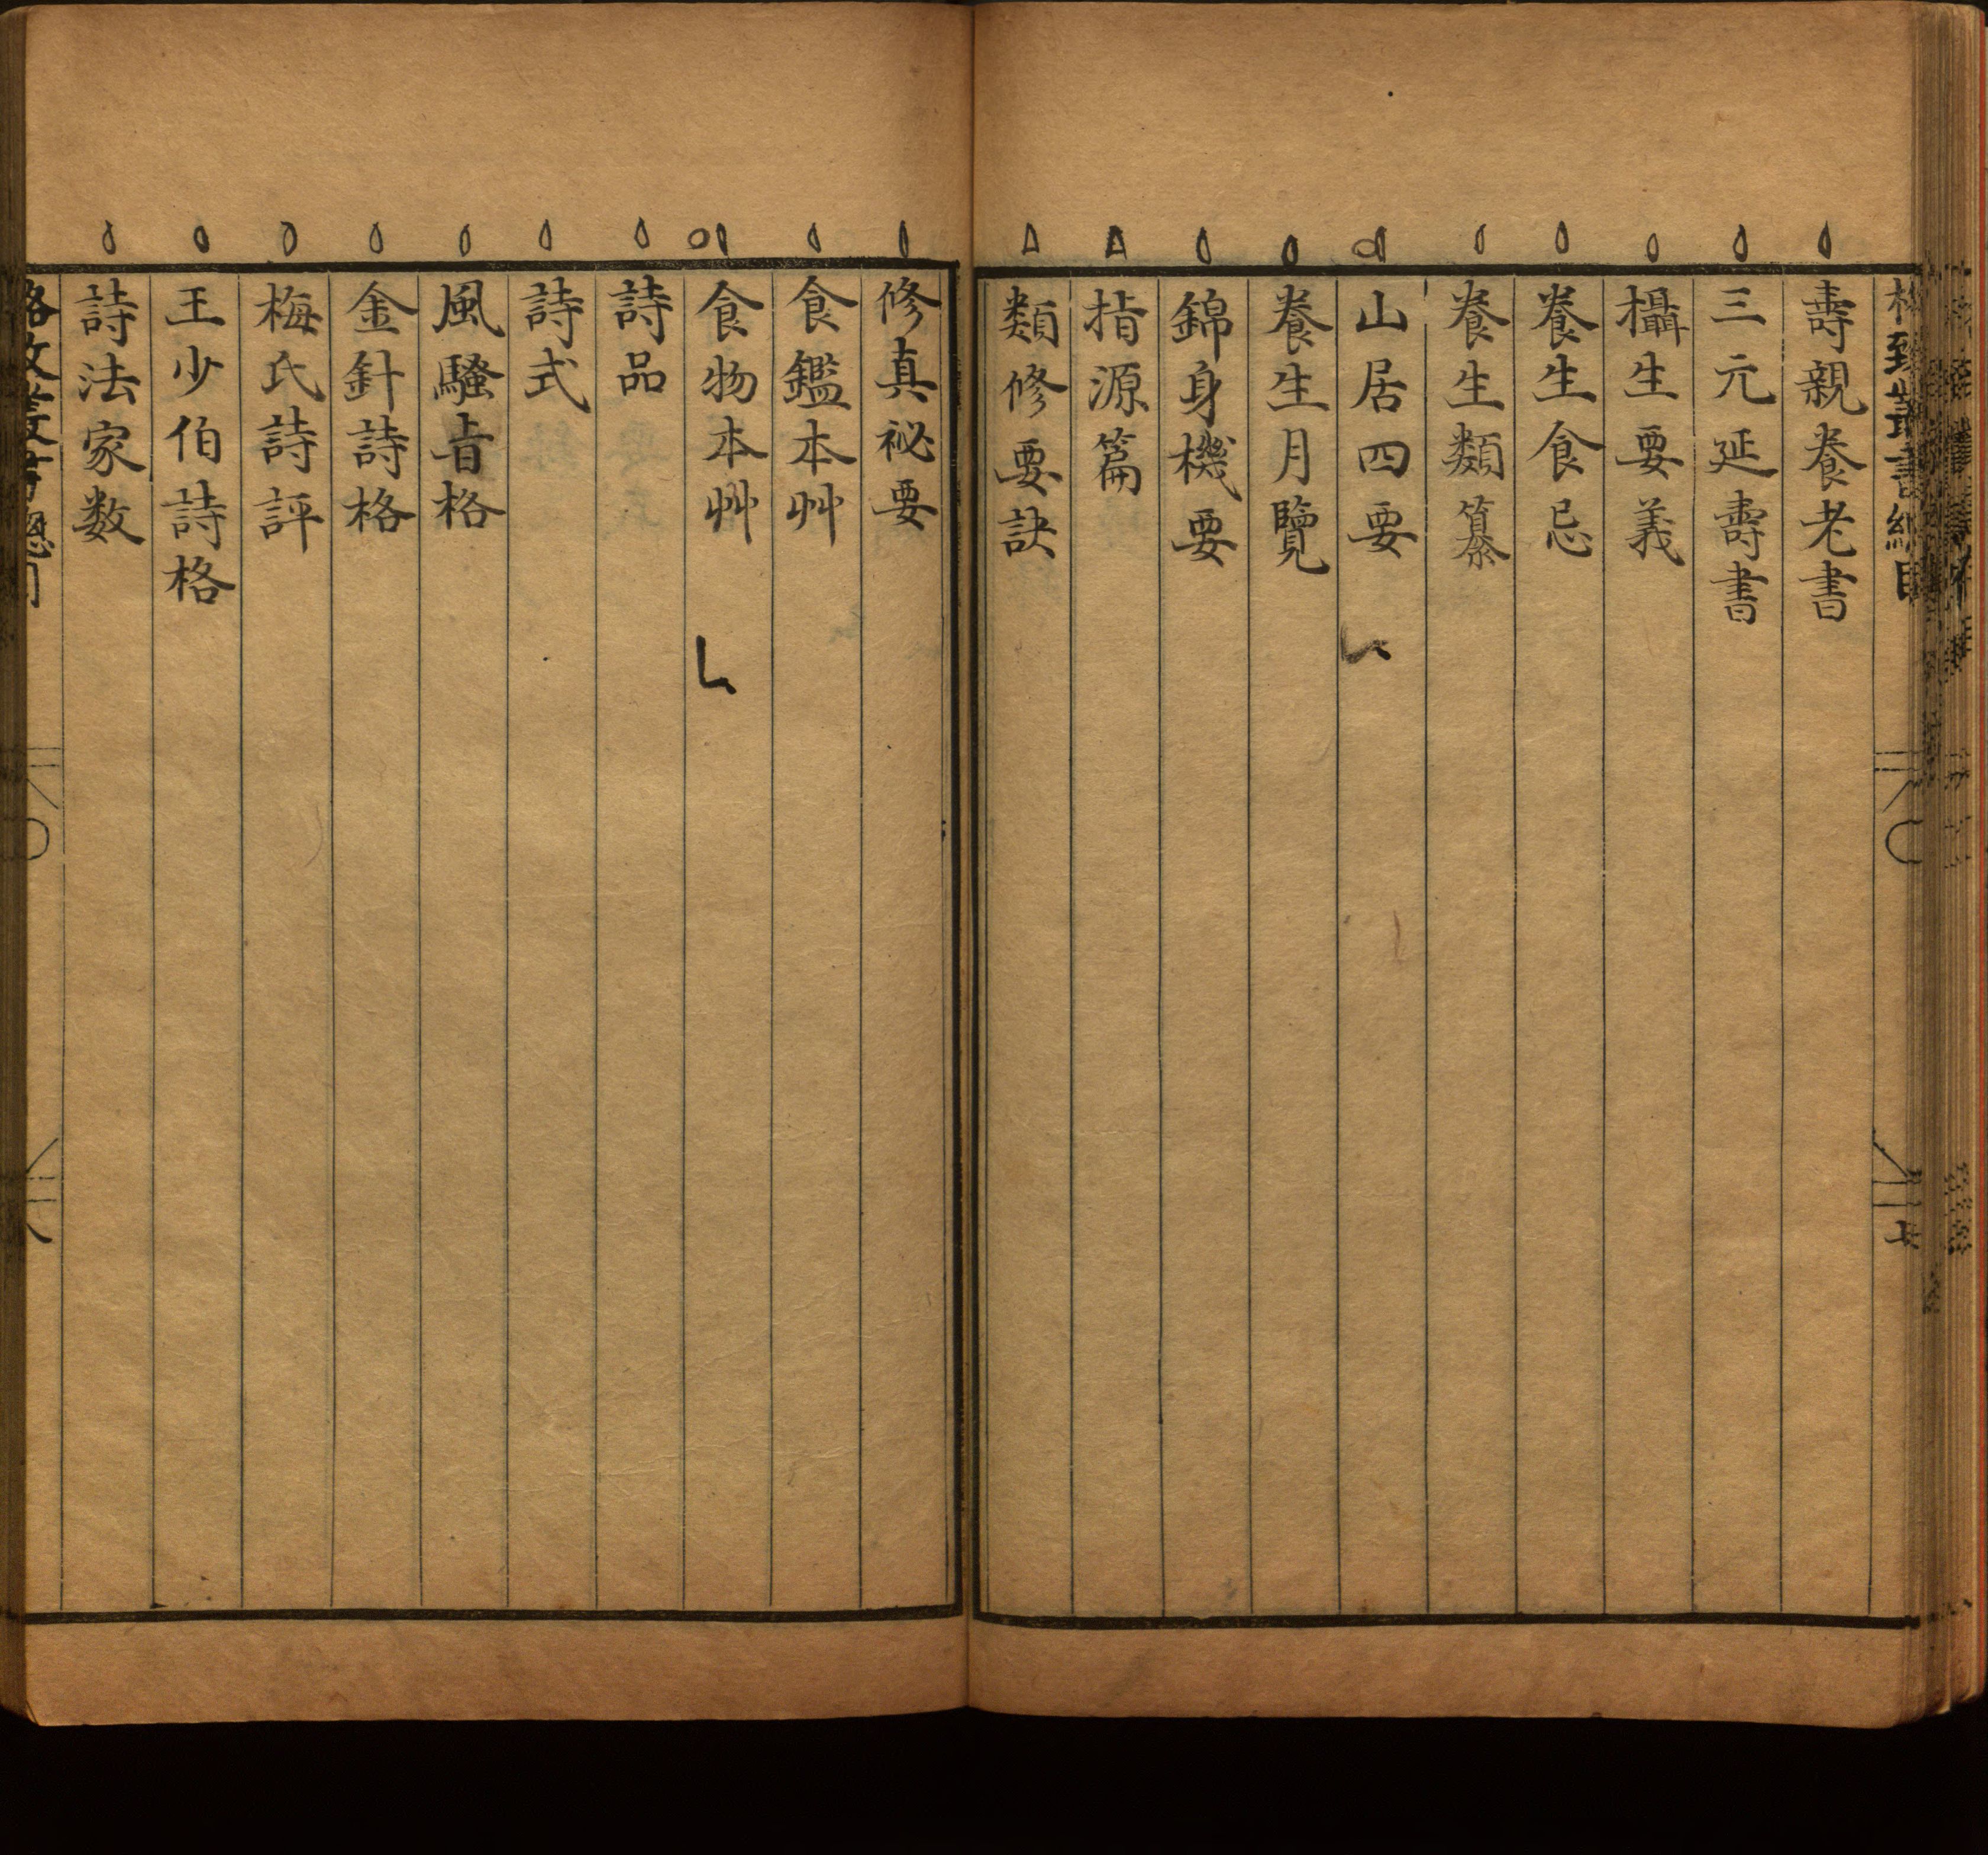 壽親養老書
三元延壽書
攝生要義
養生食忌
養生類纂
山居四要
養生月覽
錦身機要
指源篇
類修要訣
修真祕要
食鑑本艸
食物本艸
詩品
詩式
風騷旨格
金針詩格
梅氏詩評
王少伯詩格
詩法家数